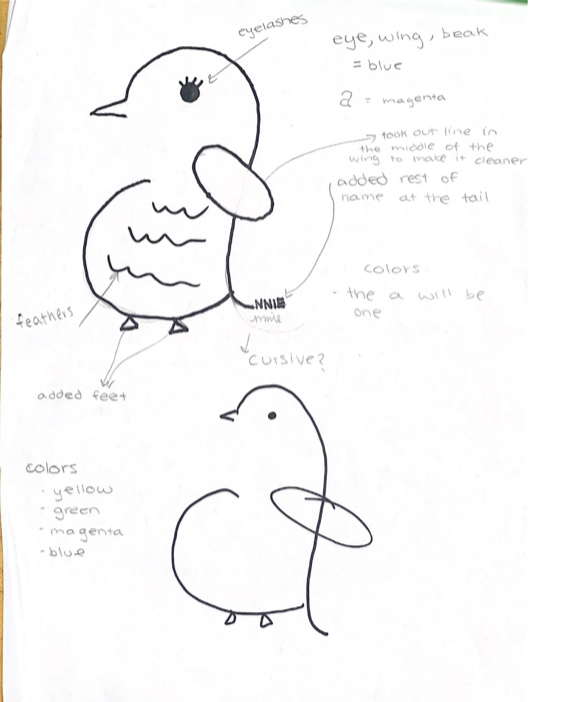 eyelashes
eye, wing, beak
= blue
a = magenta
took out line in
the middle of the
wing to make it cleaner
added rest of
name at the tail
colors
- the a will be
one
NNIE
nnie
feathers
cursive?
added feet
colors
- yellow
- green
- magenta
- blue